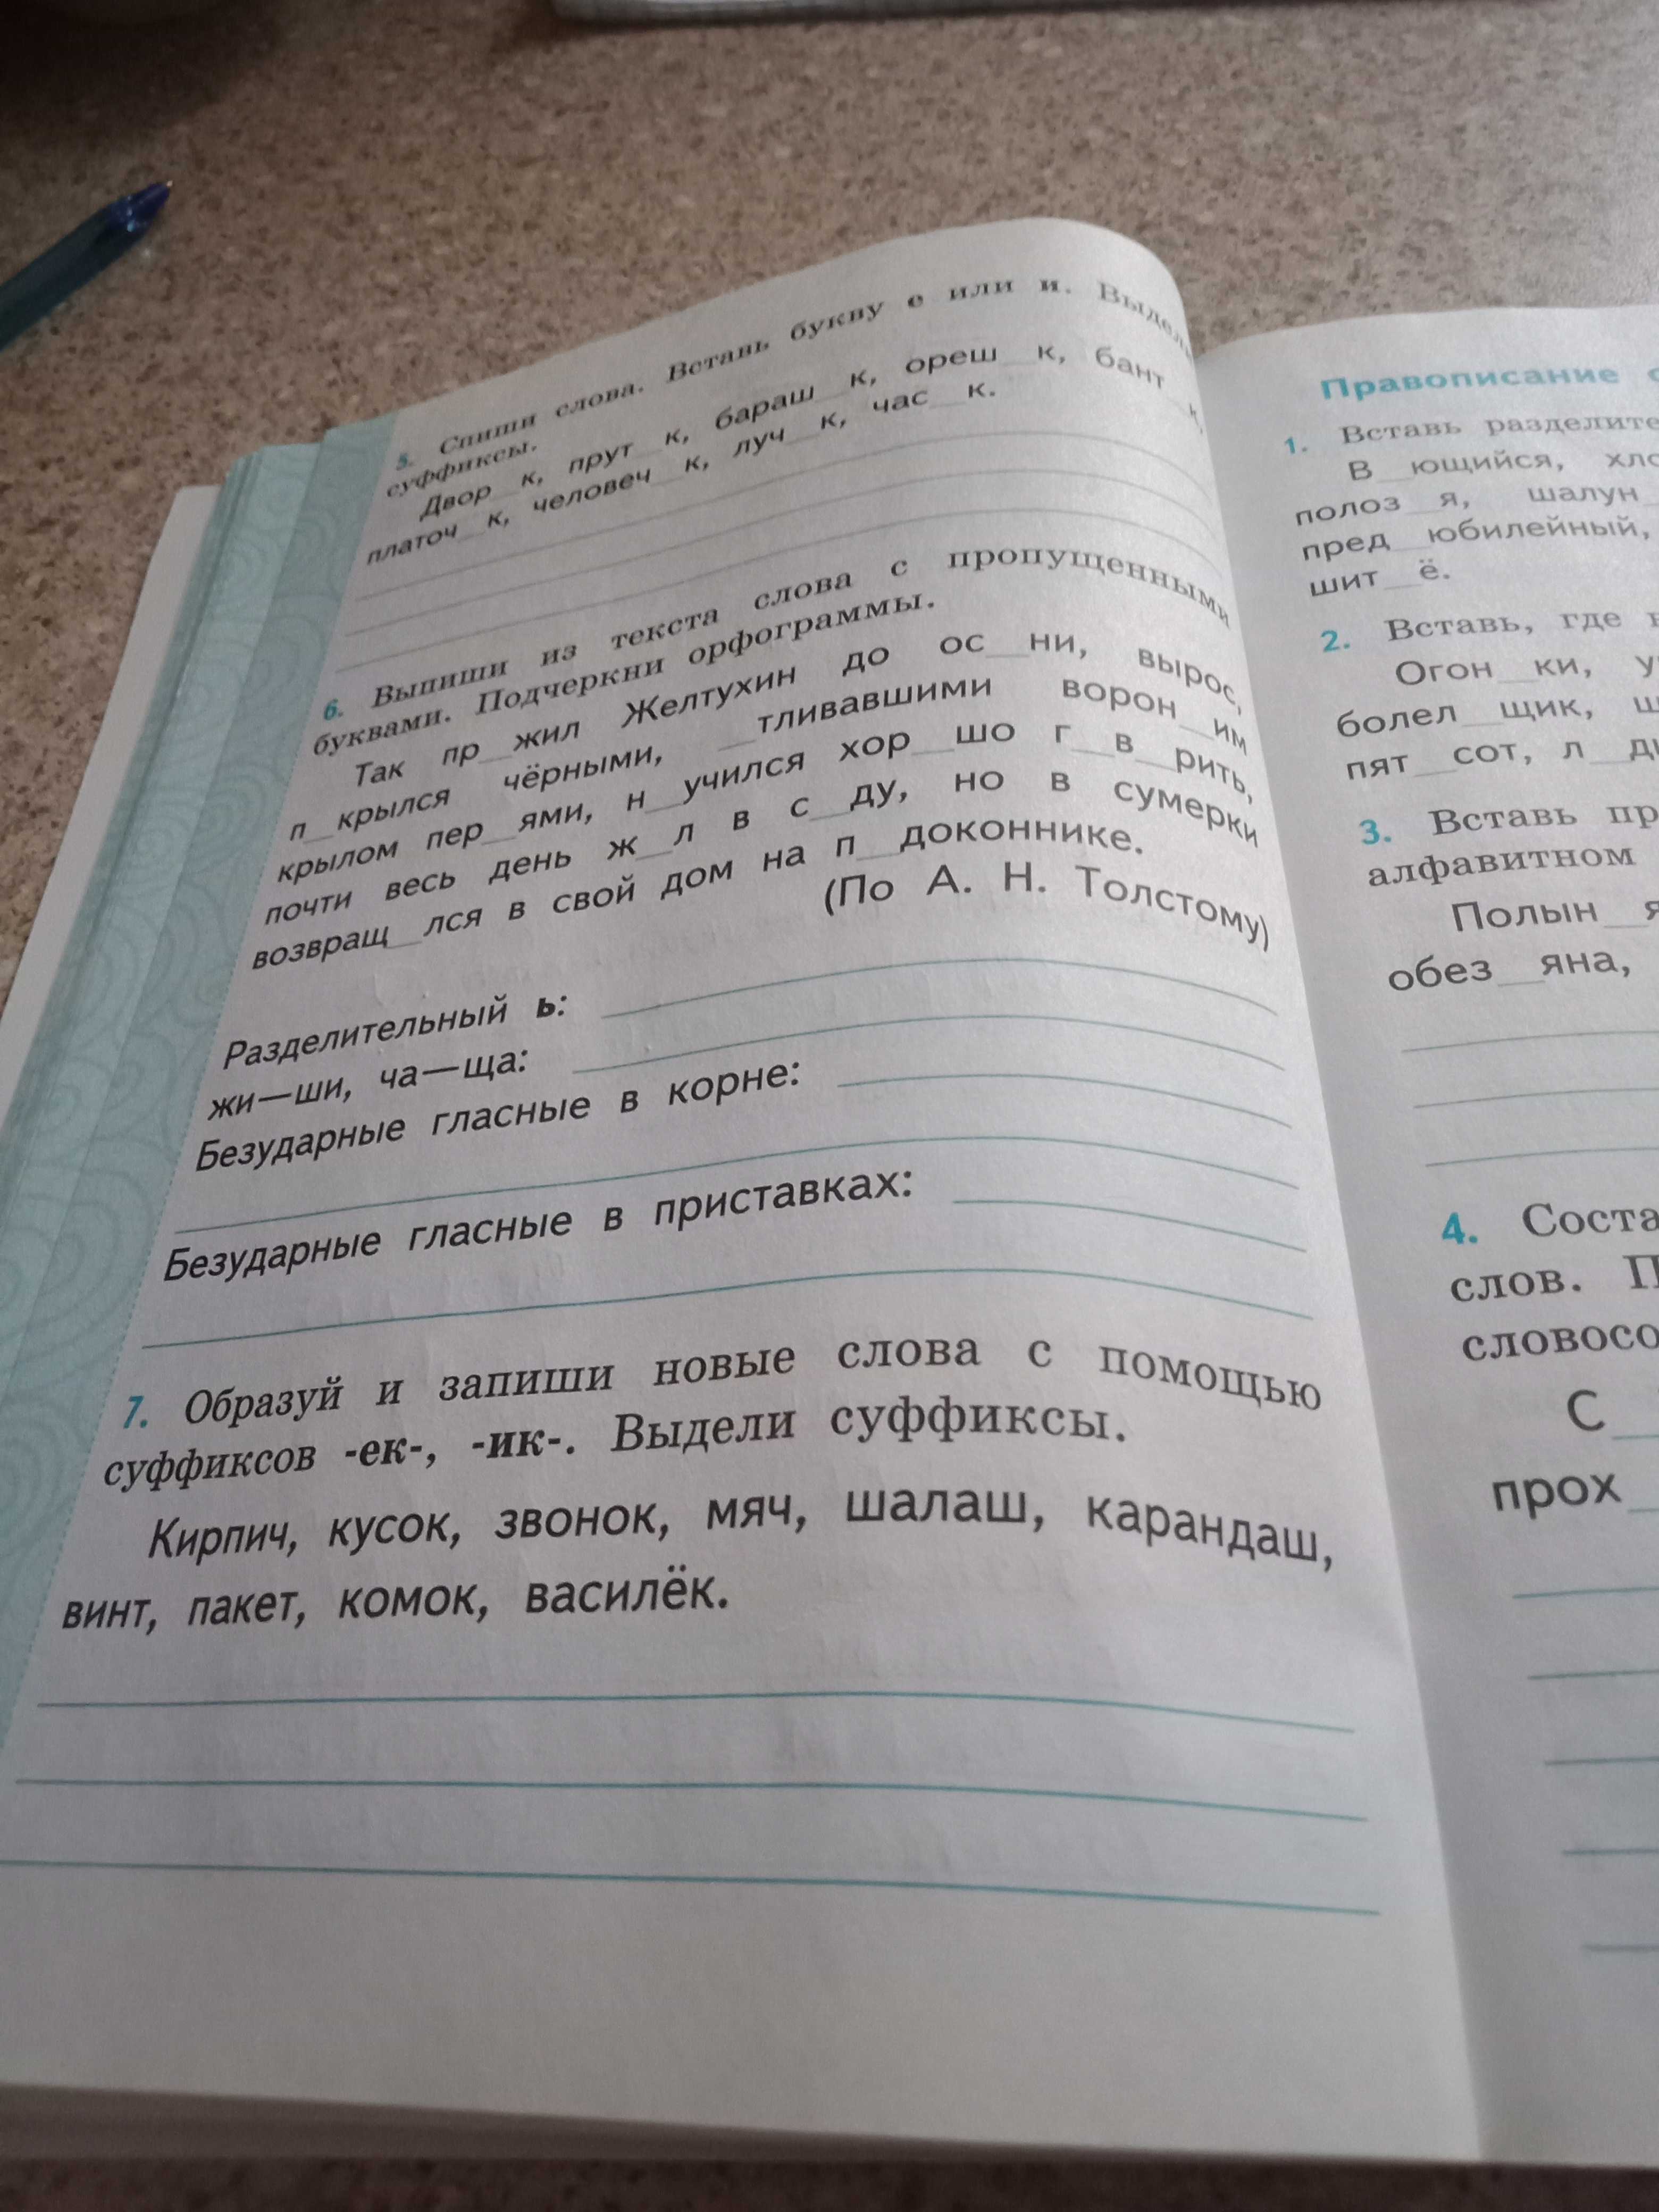 5. Спиши слова. Вставь букву е или и. Выдели
суффиксы.
Двор__к, прут__к, бараш__к, ореш__к, бант__к,
платоч__к, человеч__к, луч__к, час__к.
6. Выпиши из текста слова с пропущенными
буквами. Подчеркни орфограммы.
Так пр__жил Желтухин до ос__ни, вырос,
п__крылся чёрными, __тливавшими ворон__им
крылом пер__ями, н__учился хор__шо г__в__рить,
почти весь день ж__л в с__ду, но в сумерки
возвращ__лся в свой дом на п__доконнике.
(По А. Н. Толстому)
Разделительный ь:
жи—ши, ча—ща:
Безударные гласные в корне:
Безударные гласные в приставках:
7. Образуй и запиши новые слова с помощью
суффиксов -ек-, -ик-. Выдели суффиксы.
Кирпич, кусок, звонок, мяч, шалаш, карандаш,
винт, пакет, комок, василёк.
Правописание
1. Вставь
В__ющийся,
полоз__я, шалун
пред__юбилейный,
шит__ё.
2. Вставь, где
Огон__ки,
болел__щик,
пят__сот,
3. Вставь
алфавитном
Полын__я
обез__яна,
4.
слов.
С__
прох__